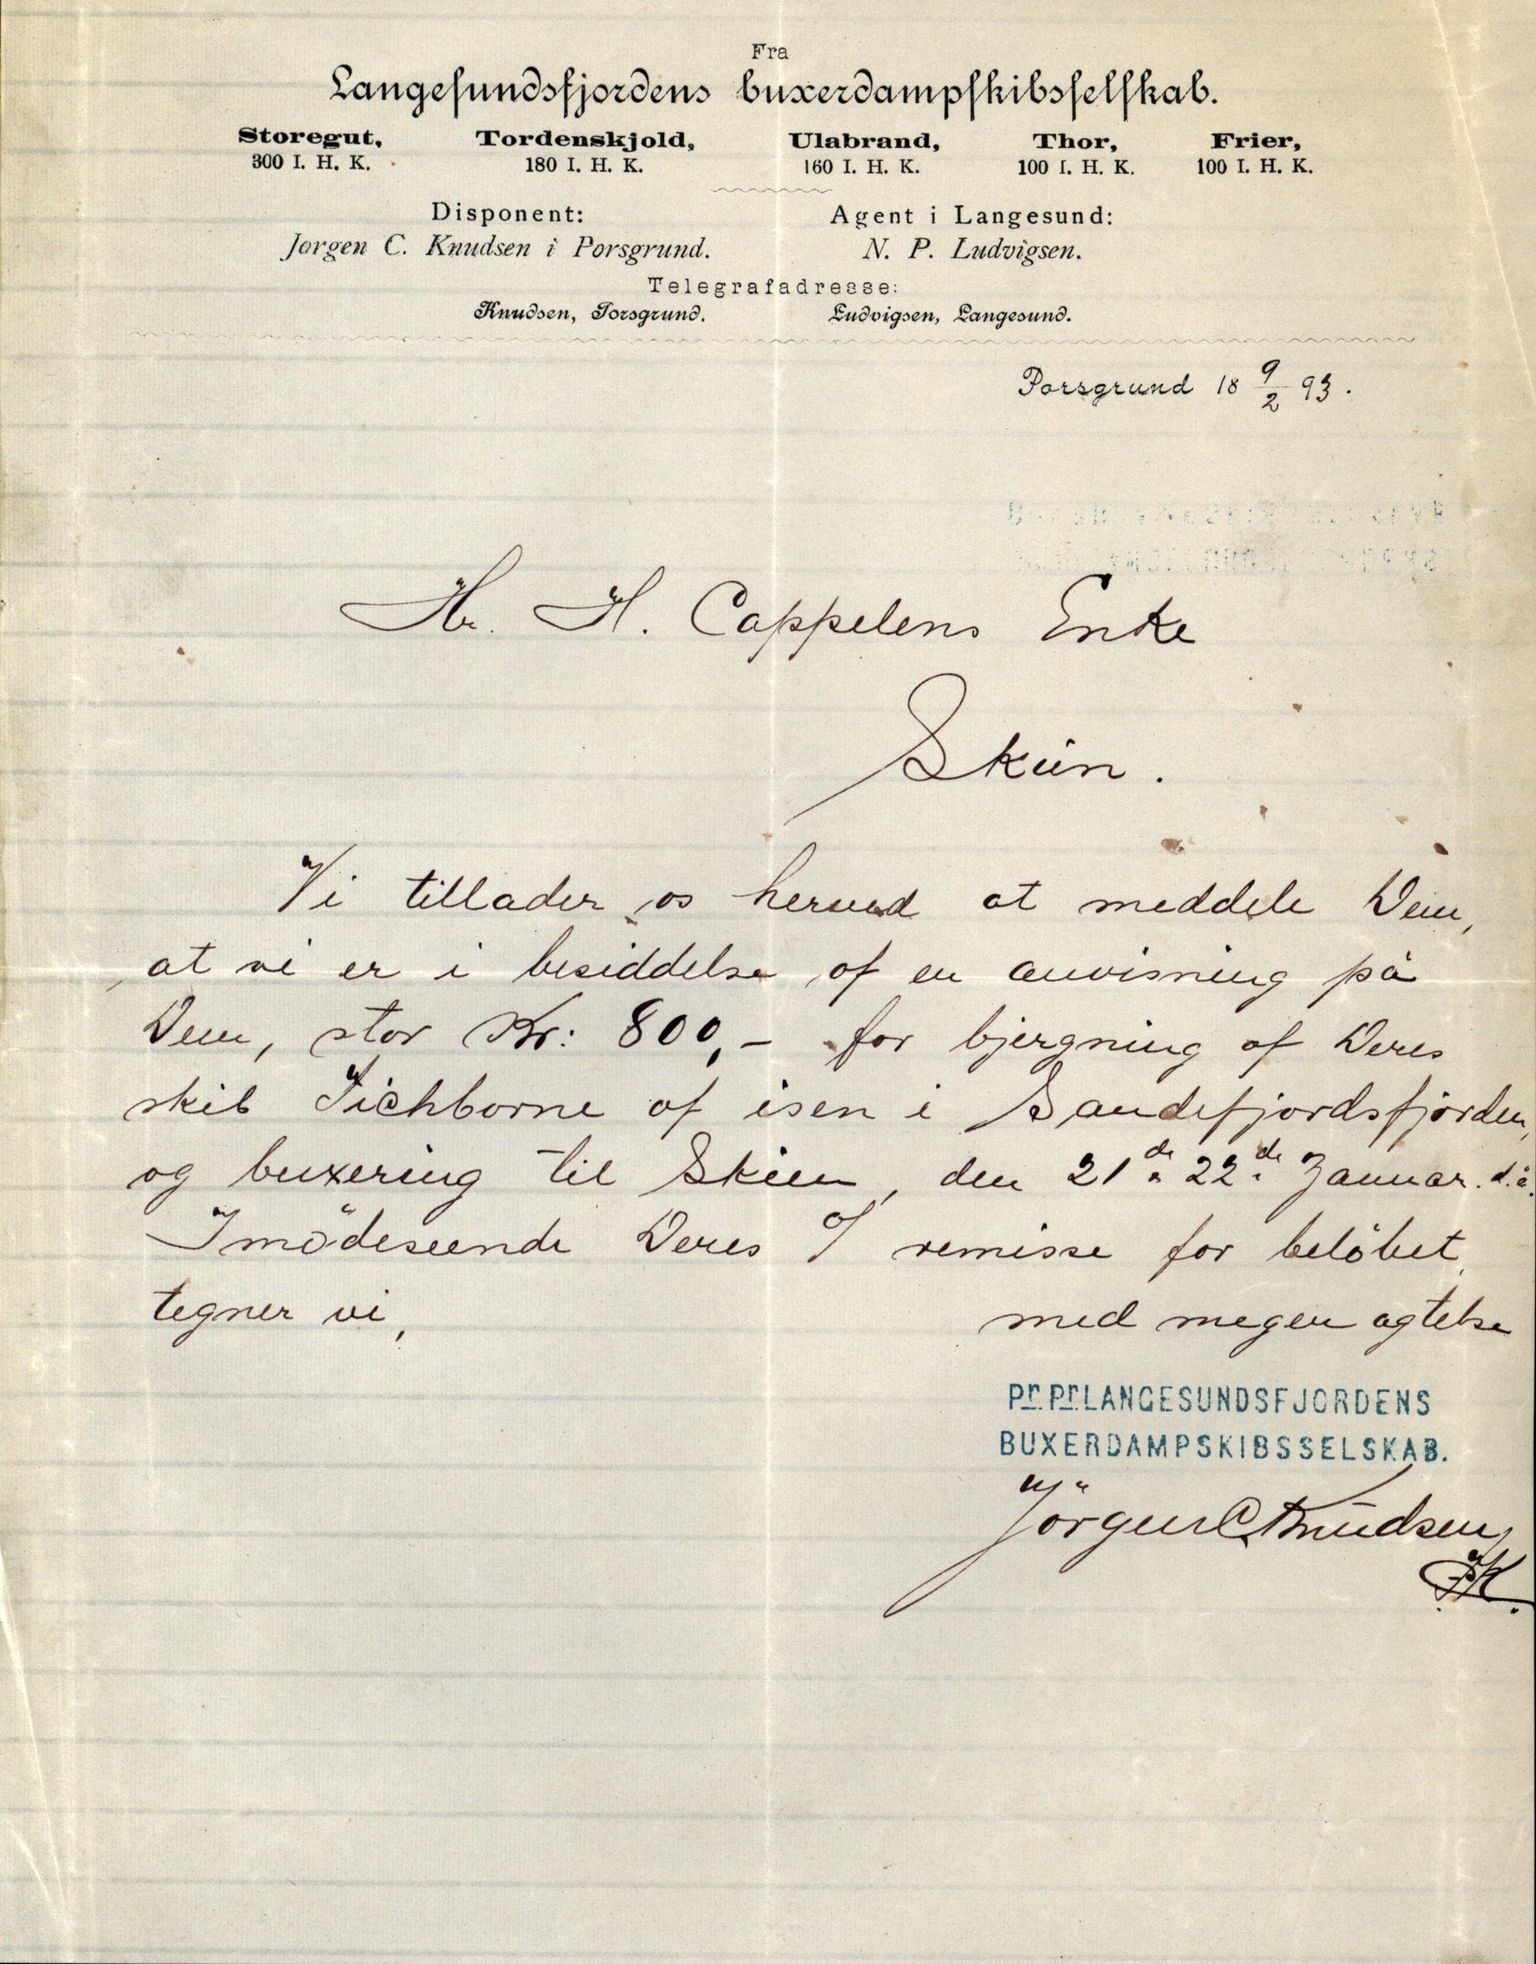 Fra
Langesundsfjordens buxerdampskibsselskab.
Storegut, Tordenskjold, Ulabrand, Thor, Frier,
300 I. H. K. 180 I. H. K. 160 I. H. K. 100 I. H. K. 100 I. H. K.
Disponent: Agent i Langesund:
Jørgen C. Knudsen i Porsgrund. N. P. Ludvigsen.
Telegrafadresse:
Knudsen, Porsgrund. Ludvigsen, Langesund.
Porsgrund 18 9/2 93.
Hr. H. Cappelens Enke
Skien.
Vi tillader os herved at meddele Dem,
at vi er i besiddelse af en anvisning på
Dem, stor Kr: 800,- for bjergning af Deres
skib Tichborne af isen i Sandefjordsfjorden,
og buxering til Skien, den 21de a 22de Januar d.å.
Imødeseende Deres % remisse for beløbet,
tegner vi,
med megen agtelse
Pr. Pr. LANGESUNDSFJORDENS
BUXERDAMPSKIBSSELSKAB.
Jörgen C. Knudsen